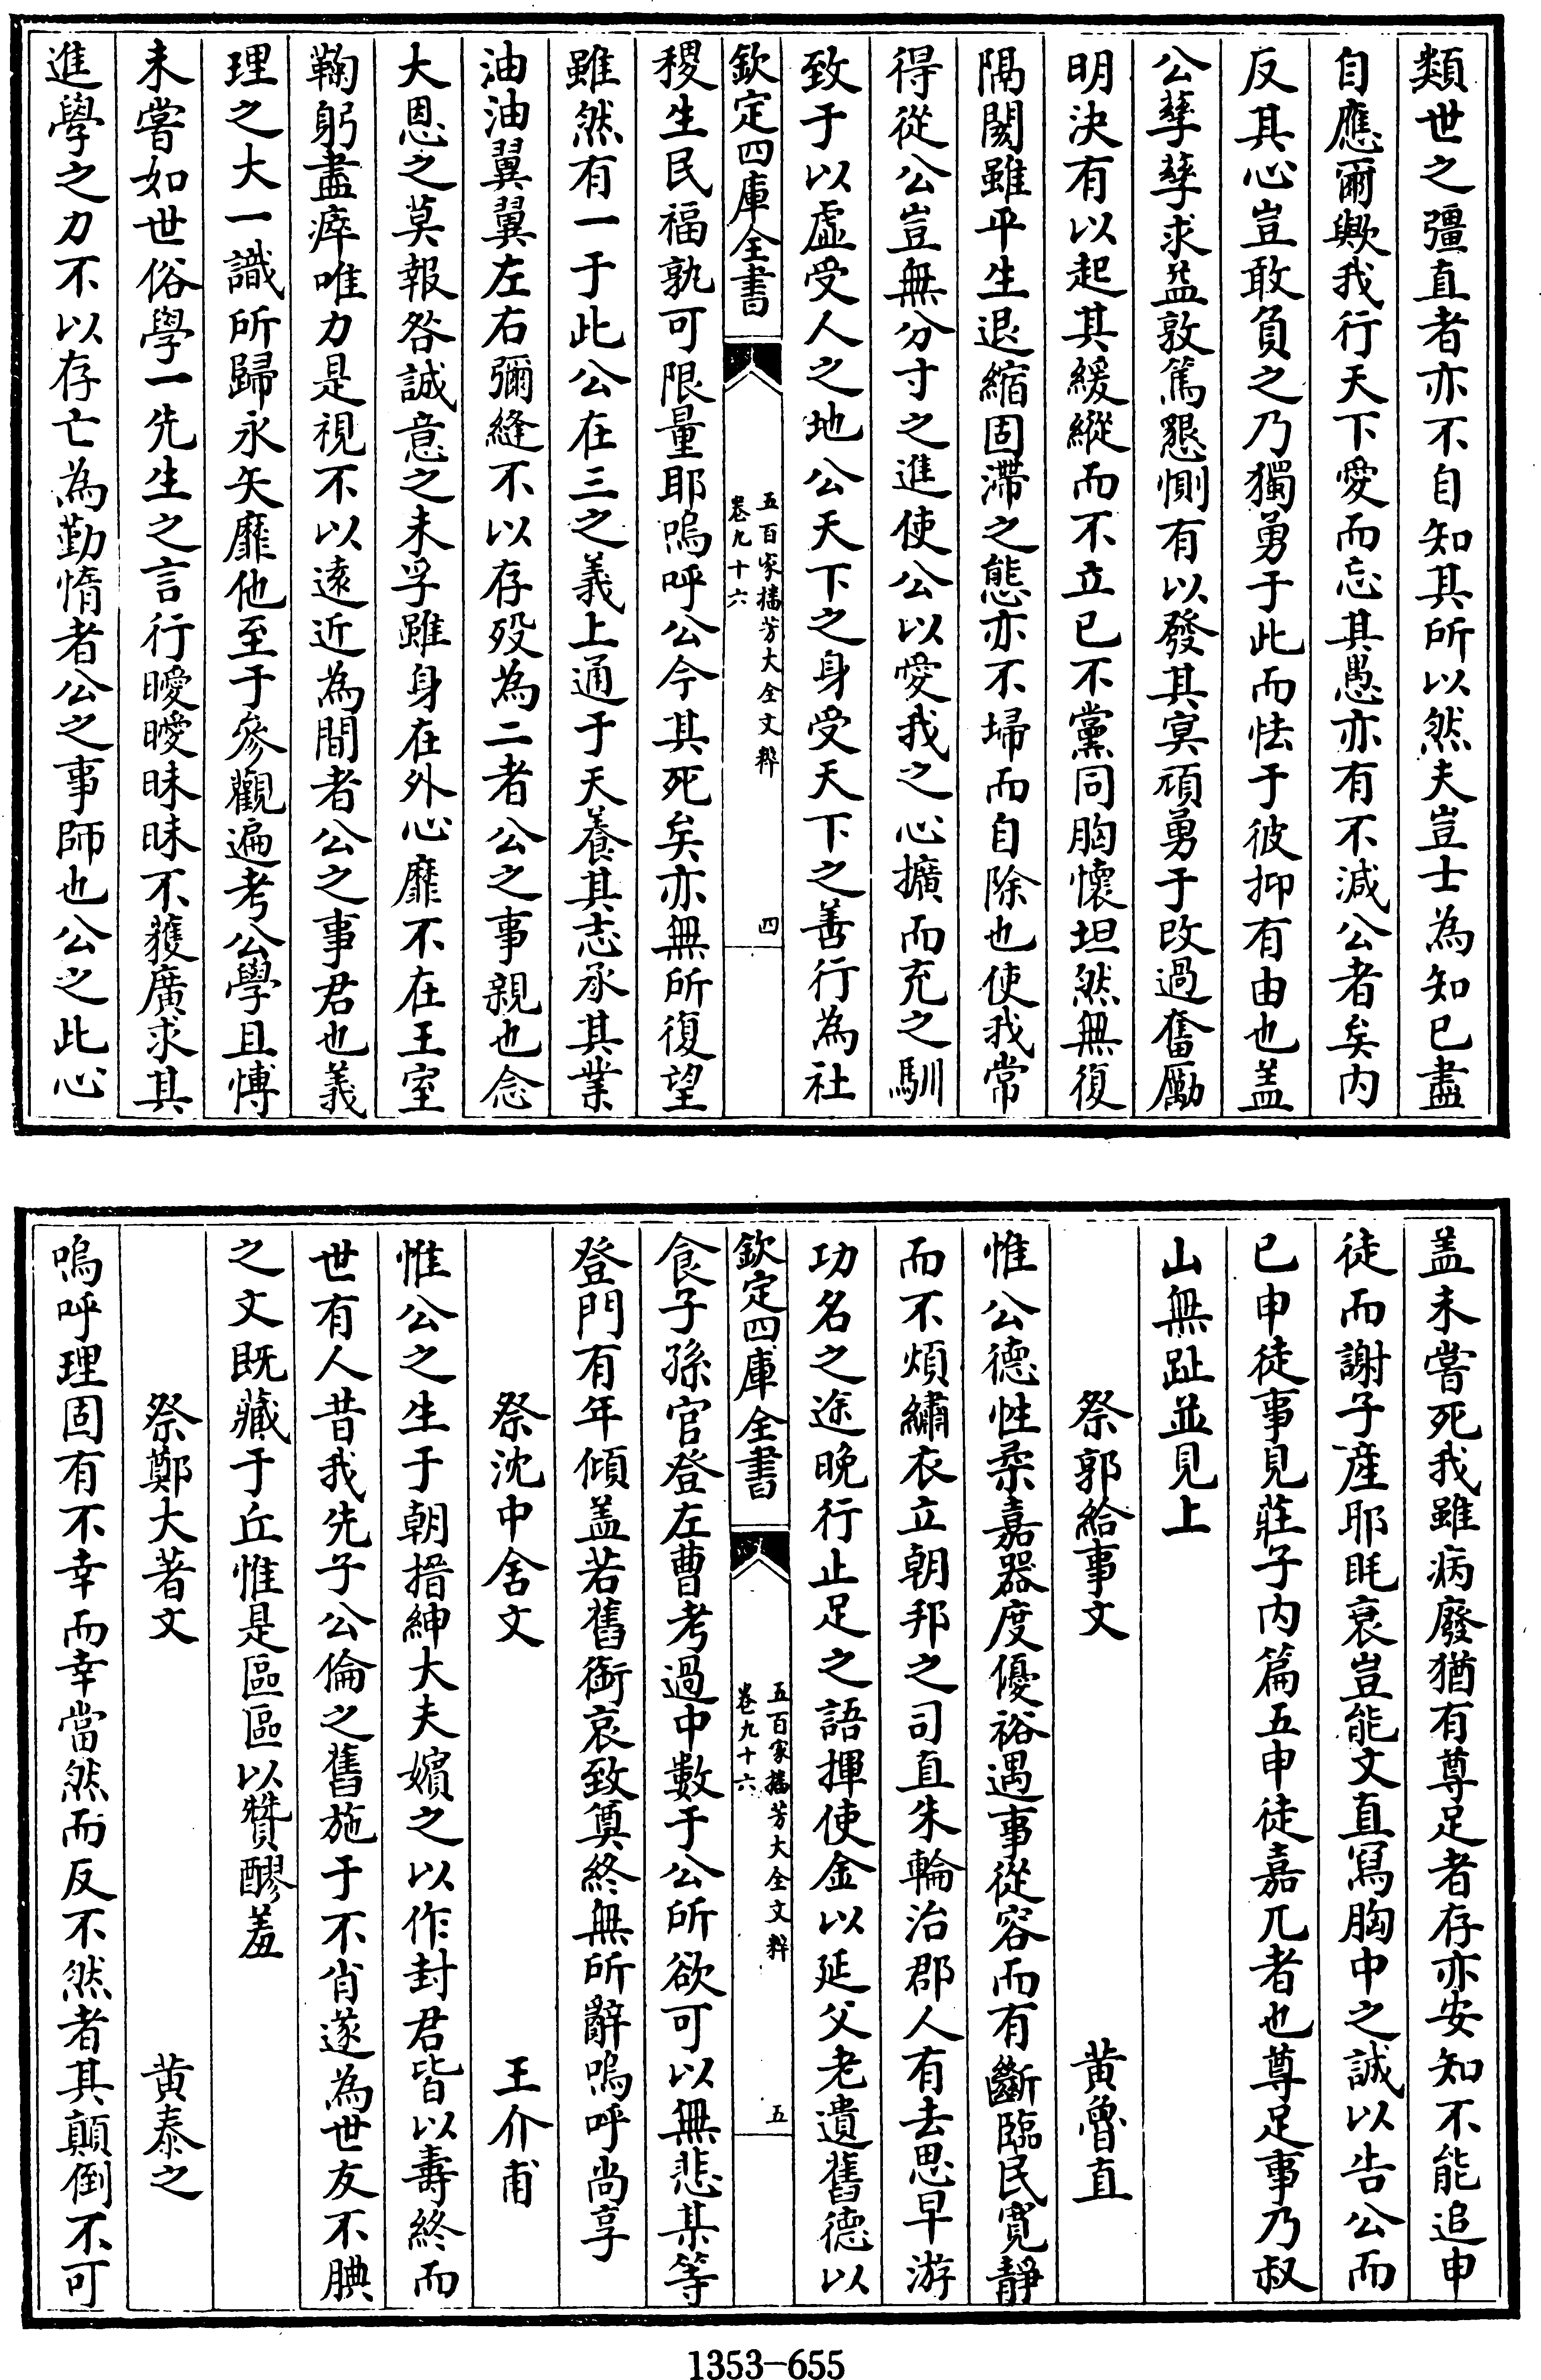 類世之彊直者亦不自知其所以然夫豈士為知已盡
自應爾歟我行天下愛而忘其愚亦有不減公者矣内
反其心豈敢負之乃獨勇于此而怯于彼抑有由也盖
公孳孳求益敦篤懇惻有以發其㝠頑勇于改過奮勵
明決有以起其緩縱而不立已不黨同胸懷坦然無復
隔閡雖平生退縮固滯之態亦不埽而自除也使我常
得從公豈無分寸之進使公以愛我之心擴而充之馴
致于以虛受人之地公天下之身受天下之善行為社
欽定四庫全書
五百家播芳大全文粹
卷九十六
四
稷生民福孰可限量耶嗚呼公今其死矣亦無所復望
雖然有一于此公在三之義上通于天養其志承其業
油油翼翼左右彌縫不以存殁為二者公之事親也念
大恩之莫報咎誠意之未孚雖身在外心靡不在王室
鞠躬盡瘁唯力是視不以逺近為間者公之事君也義
理之大一識所歸永矢靡他至于參觀遍考公學且愽
未嘗如世俗學一先生之言行曖曖昧昧不獲廣求其
進學之力不以存亡為勤惰者公之事師也公之此心
盖未嘗死我雖病廢猶有尊足者存亦安知不能追申
徒而謝子産耶眊衰豈能文直寫胸中之誠以告公而
已申徒事見莊子内篇五申徒嘉兀者也尊足事乃叔
山無趾並見上
祭郭給事文 黄魯直
惟公德性柔嘉器度優裕遇事從容而有斷臨民寛靜
而不煩繡衣立朝邦之司直朱輪治郡人有去思早游
功名之途晚行止足之語揮使金以延父老遺舊德以
欽定四庫全書
五百家播芳大全文粹
卷九十六
五
食子孫官登左曹考過中數于公所欲可以無悲某等
登門有年傾盖若舊銜哀致奠終無所辭嗚呼尚享
祭沈中舍文 王介甫
惟公之生于朝搢紳大夫嬪之以作封君皆以壽終而
世有人昔我先子公倫之舊施于不肖遂為世友不腆
之文既藏于丘惟是區區以贊醪羞
祭鄭大著文 黄泰之
嗚呼理固有不幸而幸當然而反不然者其顛倒不可
1353-655